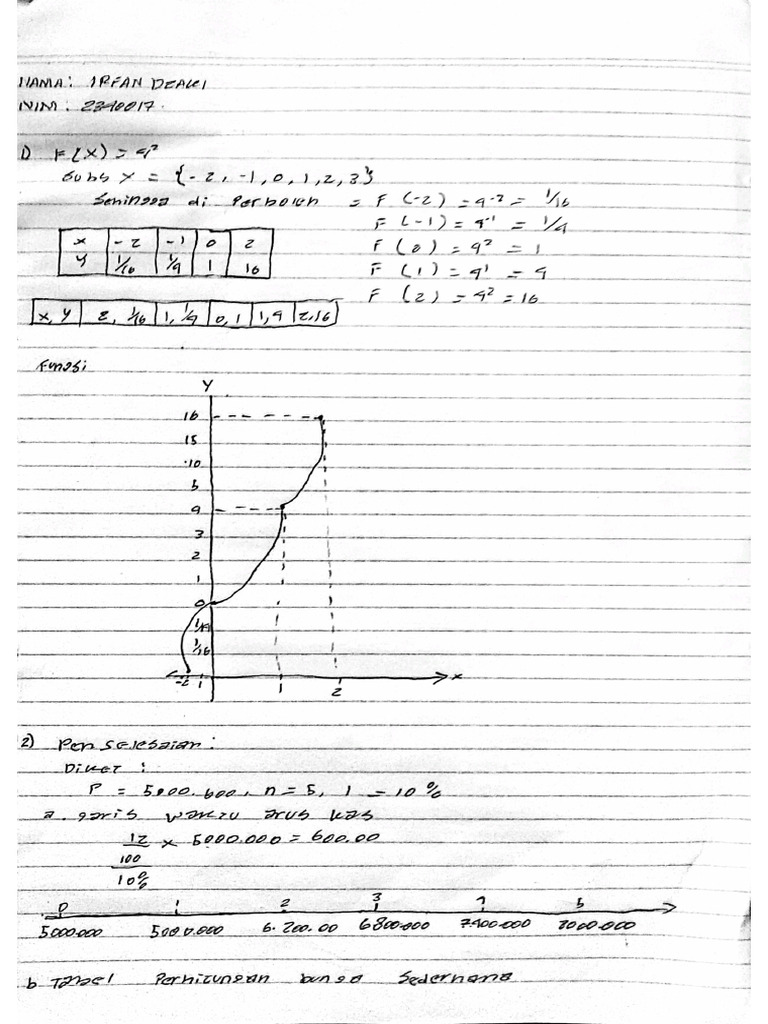 NAMA: IRFAN DZAKI
NIM : 2340017
1) F(x) = 4²
Subs x = {-2, -1, 0, 1, 2, 3}
Sehingga di peroleh = F (-2) = 4⁻² = 1/16
F (-1) = 4⁻¹ = 1/4
F (0) = 4² = 1
F (1) = 4¹ = 4
F (2) = 4² = 16
x -2 -1 0 2
y 1/16 1/4 1 16
x, y 2, 1/16 1, 1/4 0, 1 1, 4 2, 16
Fungsi
Y
16
15
10
5
4
3
2
1
0
1/4
1/16
-2 1 1 2 x
2) Penyelesaian :
Diket :
P = 5.000.600, n = 5, 1 = 10 %
a. garis waktu arus kas
12/100 x 5000.000 = 600.00
10%
0 1 2 3 4 5
5000.000 5000.000 6.200.00 6800.000 7400.000 8000.000
b Tabel Perhitungan bunga Sederhana